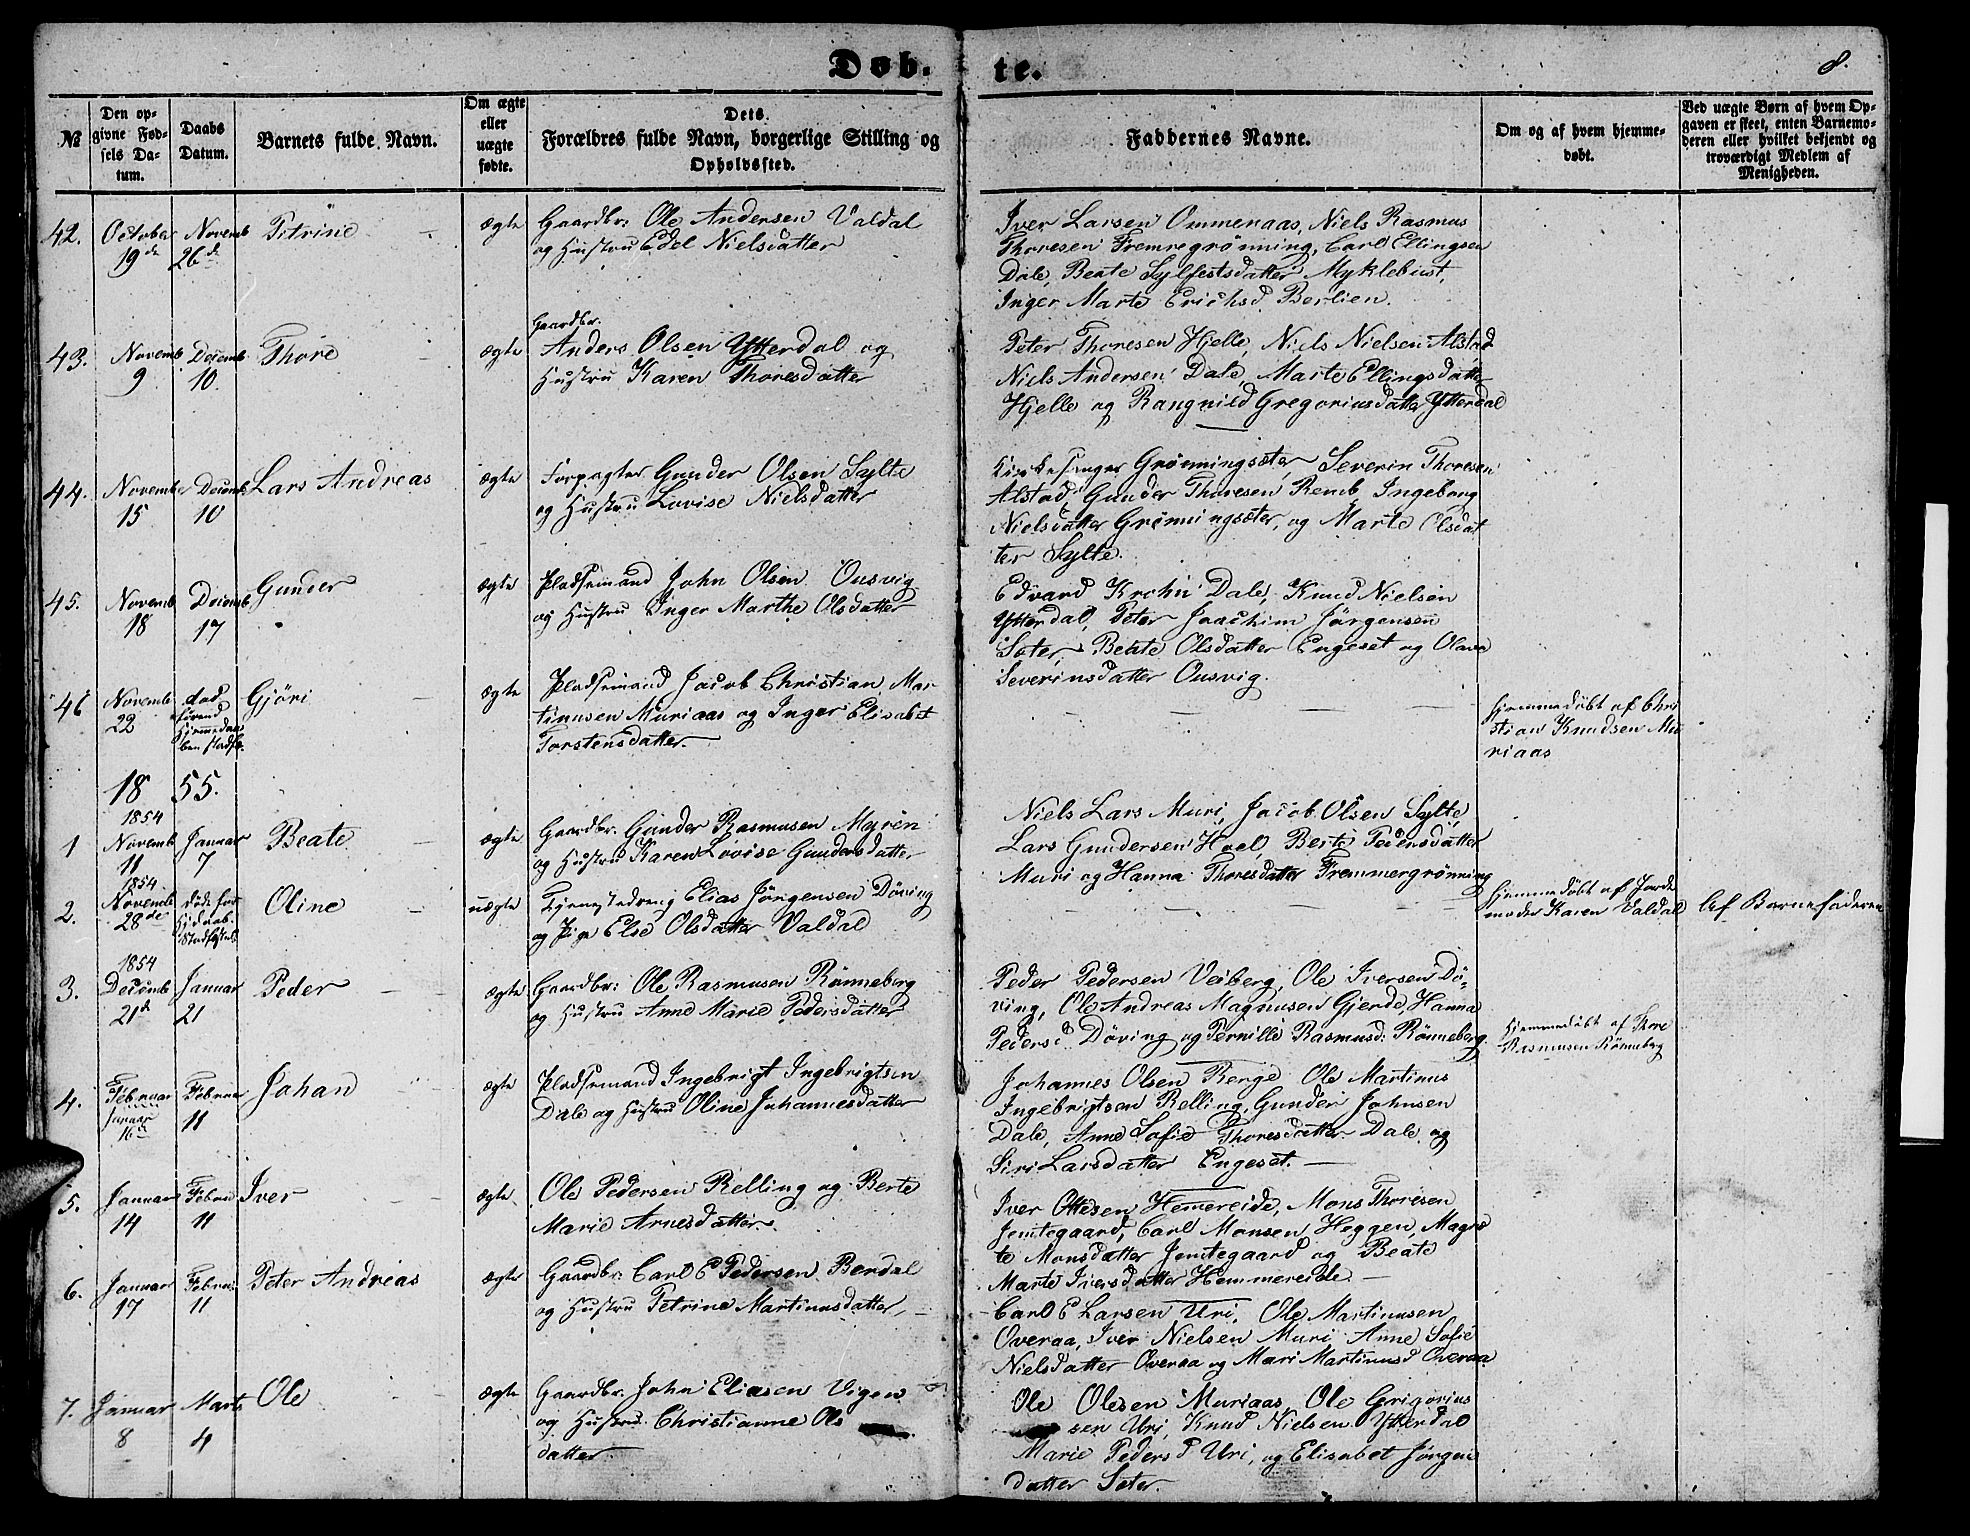 Døb.
te.
8.
№
Den op-
givne Fød-
sels Da-
tum.
Daabs
Datum.
Barnets fulde Navn.
Om ægte
eller
uægte
fødte.
Dets.
Forældres fulde Navn, borgerlige Stilling og
Opholdssted.
Faddernes Navne.
Om og af hvem hjemme-
døbt.
Ved uægte Børn af hvem Op-
gaven er skeet, enten Barnemo-
deren eller hvilket bekjendt og
troværdigt Medlem af
Menigheden.
42.
October
19de
Novemb
26de
Petrine
ægte
Gaardbr: Ole Andersen Valdal
og Hustru Edel Nielsdatter
Iver Larsen Ommenaas, Niels Rasmus
Thoresen Fremregrønning, Carl Ellingsen
Dale, Beate Sylfestsdatter Myklebust,
Inger Marte Erichsd Berlien.
43.
Novemb
9
Decemb
10
Thore
ægte
Gaardbr.
Anders Olsen Ytterdal og
Hustru Karen Thoresdatter
Peter Thoresen Hjelle, Niels Nielsen Alstad
Niels Andersen Dale, Marte Ellingsdatter
Hjelle og Rangnild Gregoriusdatter Ytterdal
44.
Novemb
15
Decemb
10
Lars Andreas
ægte
Forpagter Gunder Olsen Sylte
og Hustru Lovise Nielsdatter
Kirkesanger Grønningsæter, Severin Thoresen
Alstad, Gunder Thoresen Remb, Ingeborg
Nielsdatter Grønningsæter, og Marte Olsdat
ter Sylte.
45.
Novemb
18
Decemb
17
Gunder
ægte
Pladsemand John Olsen Ousvig
og Hustru Inger Marthe Olsdatter
Edvard Krohn Dale, Knud Nielsen
Ytterdal, Peter Joachim Jørgensen
Sæter, Beate Olsdatter Engeset og Olava
Severinsdatter Ousvig.
46
Novemb
22
død
førend
Hjemmedaa-
ben stadfæ.
Gjøri
ægte
Pladsemand Jacob Christian Mar
tinusen Muriaas og Inger Elisabet
Torstensdatter
Hjemmedøbt af Chri
stian Knudsen Mu
riaas
18 55.
1
1854
Novemb
11
Januar
7
Beate
ægte
Gaardbr. Gunder Rasmusen Myren
og Hustru Karen Lovise Gundersdatter
Niels Lars Muri, Jacob Olsen Sylte,
Lars Gundersen Hoel, Berte Pedersdatter
Muri og Hanna Thoresdatter Fremmergrønning
2.
1854
Novemb
28de
døde før
Hjdaab.
Stadfæstels
Oline
uægte
Tjenestedreng Elias Jørgensen Døving
og Pige Else Olsdatter Valdal
Hjemmedøbt af Jorde
moder Karen Valdal
Af Barnefaderen
3.
1854
Decemb
21d
Januar
21
Peder
ægte
Gaardbr: Ole Rasmusen Rønneberg
og Hustru Anne Marie Pedersdatter
Peder Pedersen Veiberg, Ole Iversen Dø-
ving, Ole Andreas Magnusen Gjerde, Hanna
Pedersd Døving og Pernille Rasmusd: Rønneberg
Hjemmedøbt af Thore
Rasmusen Rønneberg
4.
Februar
Januar
16
Februar
11
Johan
ægte
Pladsemand Ingebrigt Ingebrigtsen
Dale og Hustru Oline Johannesdatter
Johannes Olsen Berge, Ole Martinus
Ingebrigtsen Relling, Gunder Johnsen
Dale, Anne Sofie Thoresdatter Dale, og
Siri Larsdatter Engeset.
5.
Januar
14
Februar
11
Iver
ægte
Ole Pedersen Relling og Berte
Marie Arnesdatter
Iver Ottesen Hemereide, Mons Thoresen
Jemtegaard, Carl Monsen Heggen, Magre
te Monsdatter Jemtegaard og Beate
Marte Iversdatter Hemmereide.
6.
Januar
17
Februar
11
Peter Andreas
ægte
Gaardbr: Carl E Pedersen Berdal
og Hustru Petrine Martinusdatter,
Carl E Larsen Uri, Ole Martinusen
Overaa, Iver Nielsen Muri, Anne Sofie
Nielsdatter Overaa og Mari Martinusd Overaa
7.
Januar
8
Marts
4
Ole
ægte
Gaardbr. John Eliasen Vigen
og Hustru Christianne Ols
datter
Ole Olesen Muriaas, Ole Grigorius
sen Uri, Knud Nielsen Ytterdal
Marie Pedersd Uri, og Elisabet Jørgens
datter Sæter.